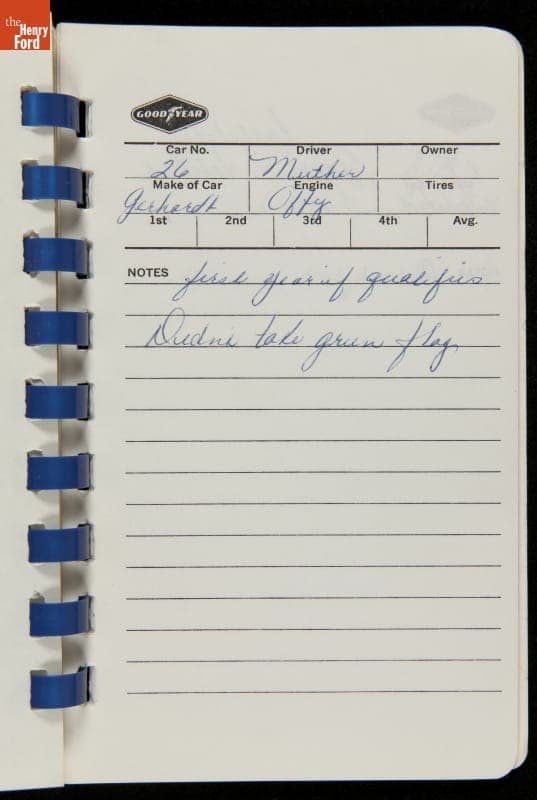 the
Henry
Ford
GOODYEAR
Car No. Driver Owner
26 Muther
Make of Car Engine Tires
Gerhardt Offy
1st 2nd 3rd 4th Avg.
NOTES first year if qualifies
Didn't take green flag